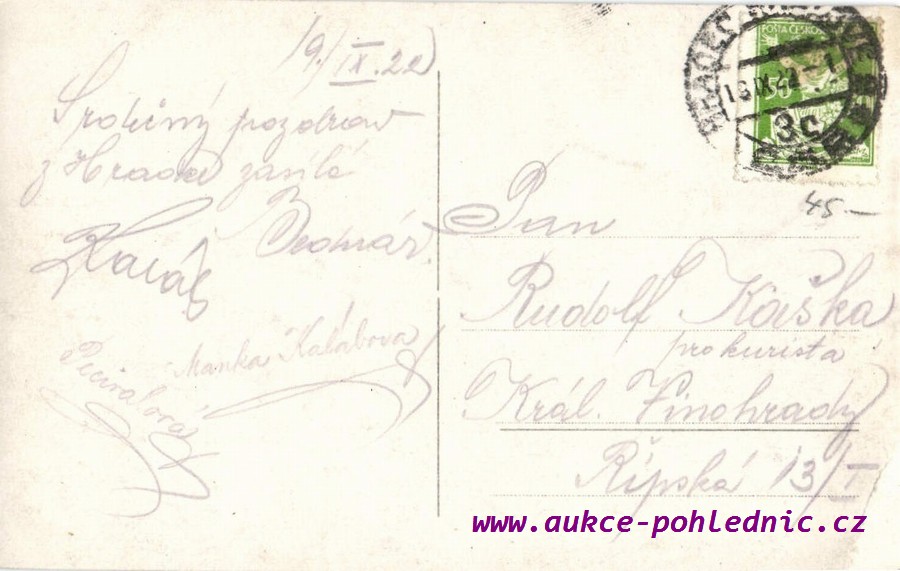 19/IX.22
Srdečný pozdrav
z Hradce zasílá
Bednář.
Kaláb
Manka Kalábova
POŠTA ČESKOS
50
3c
45-
Pan
Rudolf Kaška
prokurista
Král. Vinohrady
Řipská 13/I
www.aukce-pohlednic.cz